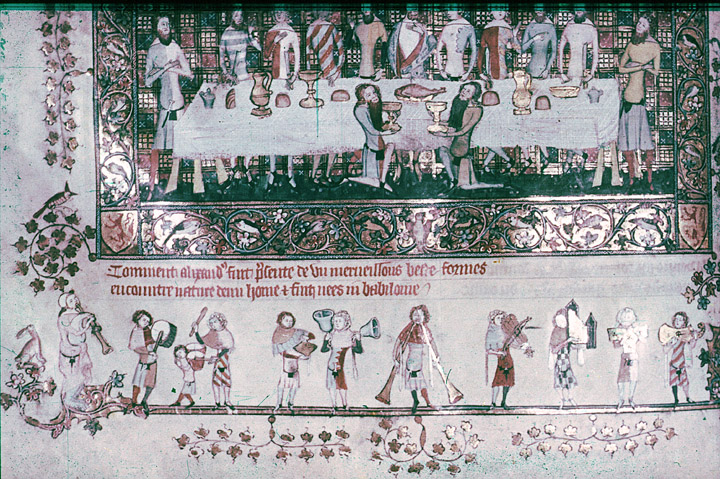 Comment alixand' fust psente de vn merueillous beste formes
encountre nature demi home & fust nees in babiloine